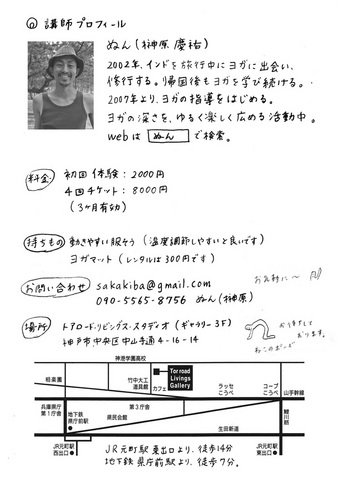 ◎ 講師プロフィール
ぬん(榊原 慶祐)
2002年、インドを旅行中にヨガに出会い、
修行する。帰国後もヨガを学び続ける。
2007年より、ヨガの指導をはじめる。
ヨガの深さを、ゆるく楽しく広める活動中。
webは ぬん で検索。
料金
初回体験:2000円
4回チケット:8000円
(3ヶ月有効)
持ちもの 動きやすい服そう(温度調節しやすいと良いです)
ヨガマット(レンタルは300円です)
お気軽に〜
お問い合わせ sakakiba@gmail.com
090-5565-8756 ぬん(榊原)
場所 トアロード・リビングス・スタジオ(ギャラリー3F)
神戸市中央区中山手通4-16-14
お待ちして
おります。
ねこのポーズ
神港学園高校
Tor road
Livings
Gallery
相楽園
竹中大工
道具館
カフェ
ラッセ
こうべ
コープ
こうべ
山手幹線
兵庫県庁
第1庁舎
地下鉄
県庁前駅
第3庁舎
県民会館
生田新道
鯉川筋
JR元町駅
西出口
JR元町駅
東出口
JR元町駅 東出口より、徒歩14分
地下鉄 県庁前駅より、徒歩7分。